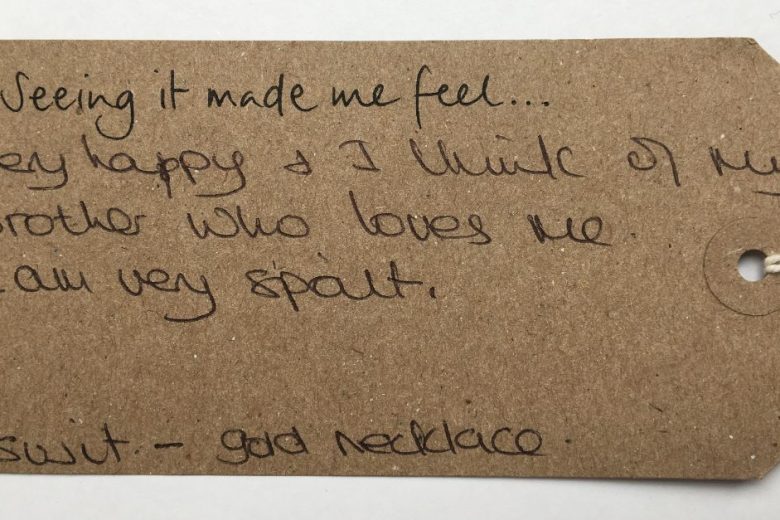 Seeing it made me feel...
ery happy & I think of my
brother who loves me.
I am very spalt.
swut. - gold necklace.